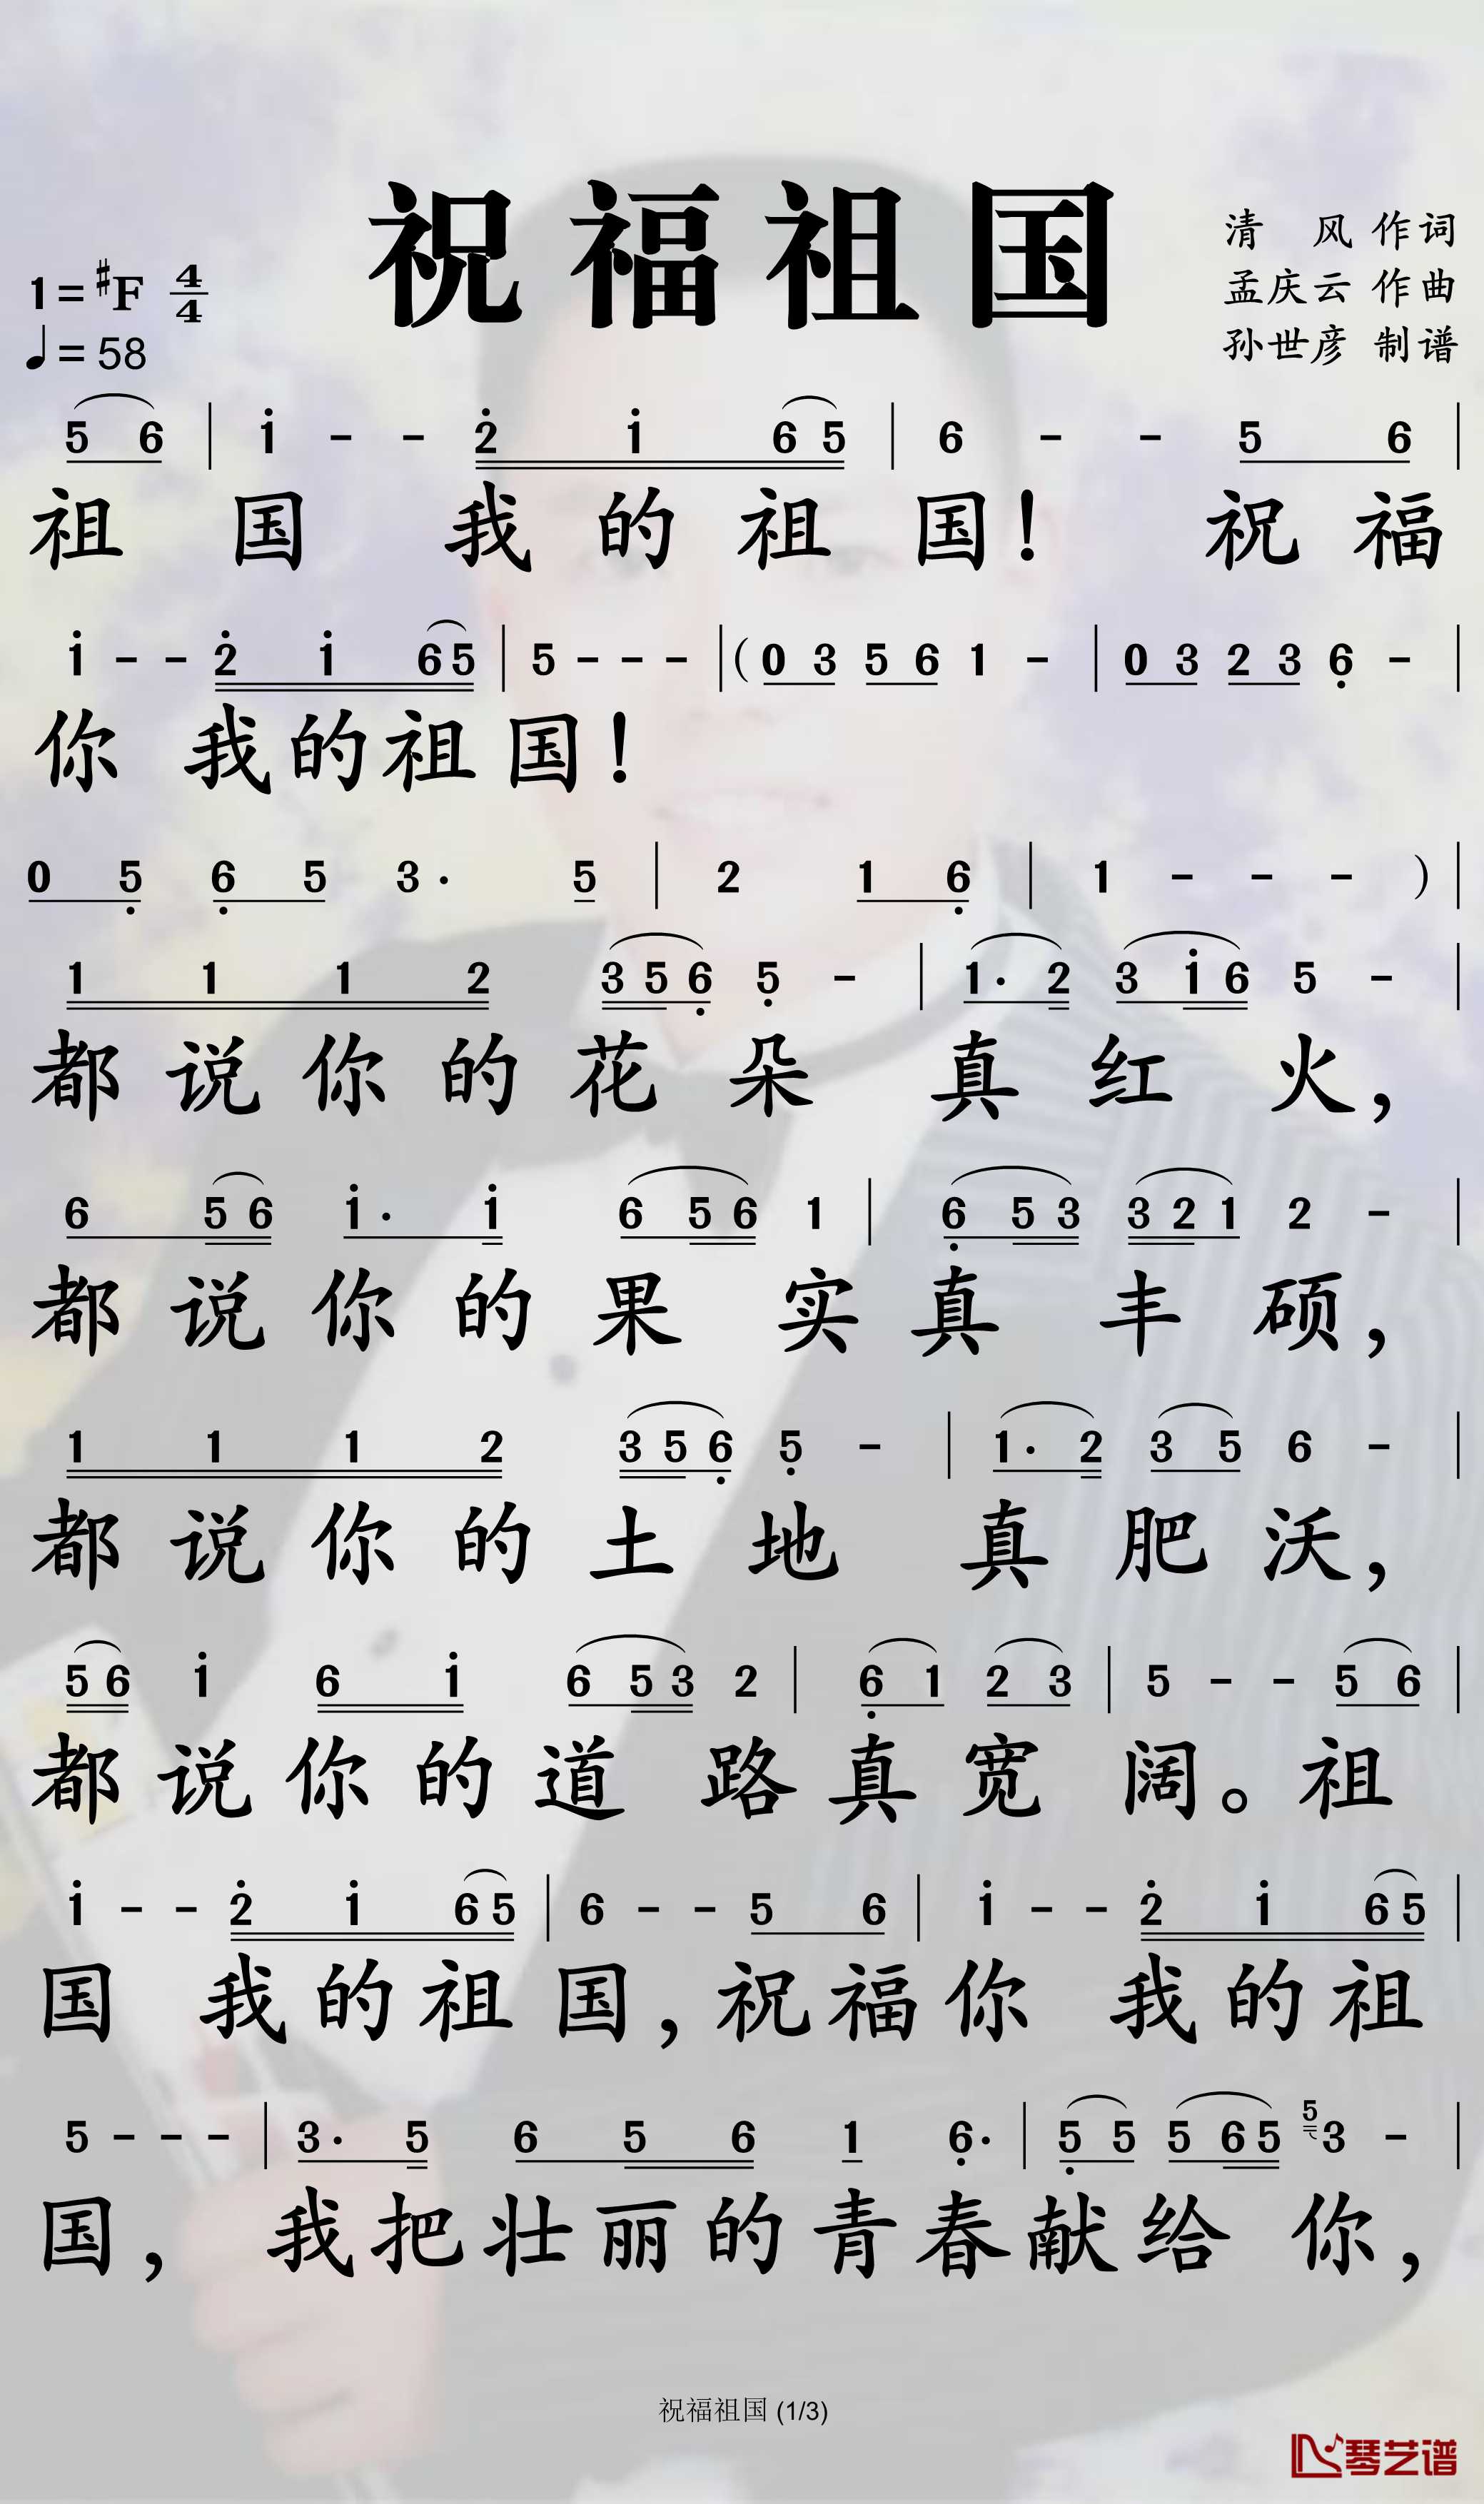 祝福祖国
清 风 作词
孟庆云 作曲
孙世彦 制谱
1=♯F 4/4
♩=58
5 6 | i - - 2̇ i 6 5 | 6 - - 5 6 |
祖 国 我 的 祖 国! 祝 福
i - - 2̇ i 6 5 | 5 - - - | (0 3 5 6 1 - | 0 3 2 3 6̣ - |
你 我的祖国!
0 5̣ 6̣ 5 3· 5 | 2 1 6̣ | 1 - - - ) |
1 1 1 2 3 5 6̣ 5̣ - | 1· 2 3 i 6 5 - |
都 说 你 的 花 朵 真 红 火,
6 5 6 i· i 6 5 6 1 | 6̣ 5 3 3 2 1 2 - |
都 说 你 的 果 实 真 丰 硕,
1 1 1 2 3 5 6̣ 5̣ - | 1· 2 3 5 6 - |
都 说 你 的 土 地 真 肥 沃,
5 6 i 6 i 6 5 3 2 | 6̣ 1 2 3 5 - - 5 6 |
都 说 你 的 道 路 真 宽 阔。祖
i - - 2̇ i 6 5 | 6 - - 5 6 | i - - 2̇ i 6 5 |
国 我 的 祖 国, 祝 福 你 我 的 祖
5 - - - | 3· 5 6 5 6 1 6̣· | 5̣ 5 5 6 5 5 3 - |
国, 我 把 壮 丽 的 青 春 献 给 你,
祝福祖国 (1/3)
琴艺谱